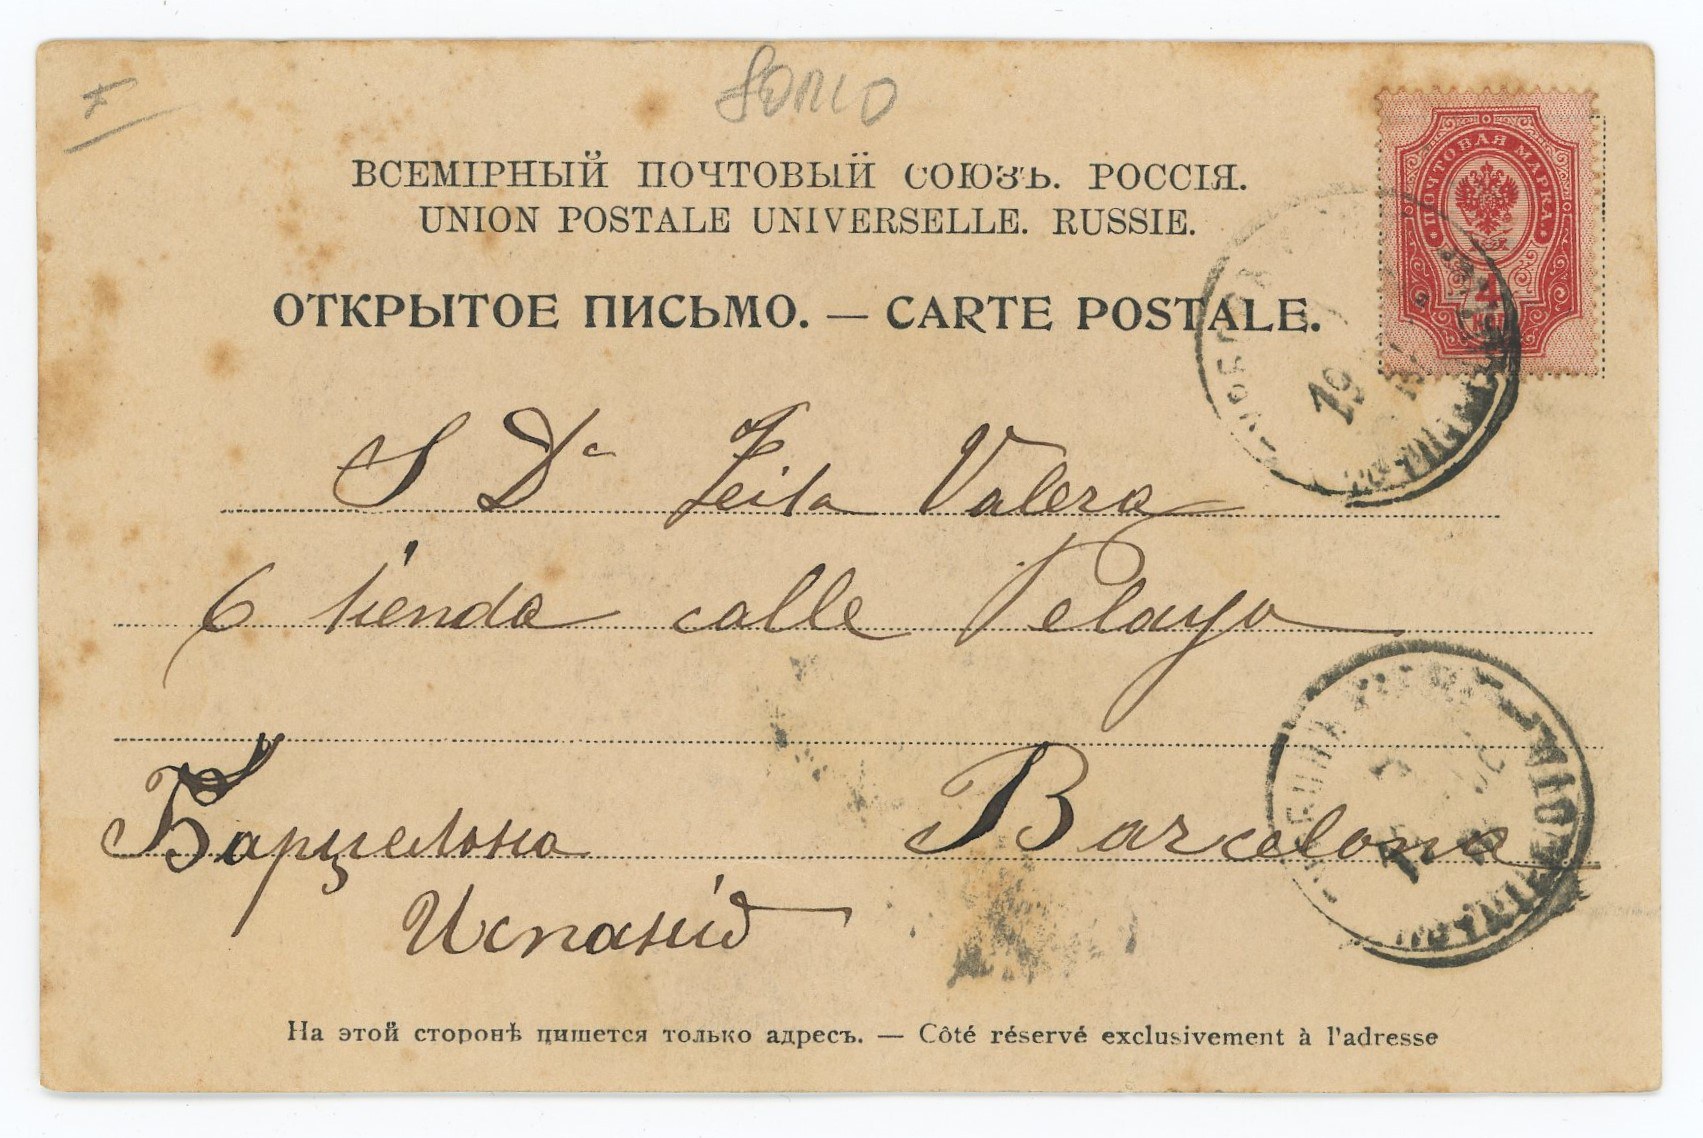 ВСЕМІРНЫЙ ПОЧТОВЫЙ СОЮЗЪ. РОССІЯ.
UNION POSTALE UNIVERSELLE. RUSSIE.
ОТКРЫТОЕ ПИСЬМО. — CARTE POSTALE.
ПОЧТОВАЯ МАРКА
4 КОП
S Dª Zeila Valera
6 tienda calle Pelayo
Барцельона Barcelona
Испанія
На этой сторонѣ пишется только адресъ. — Côté réservé exclusivement à l'adresse